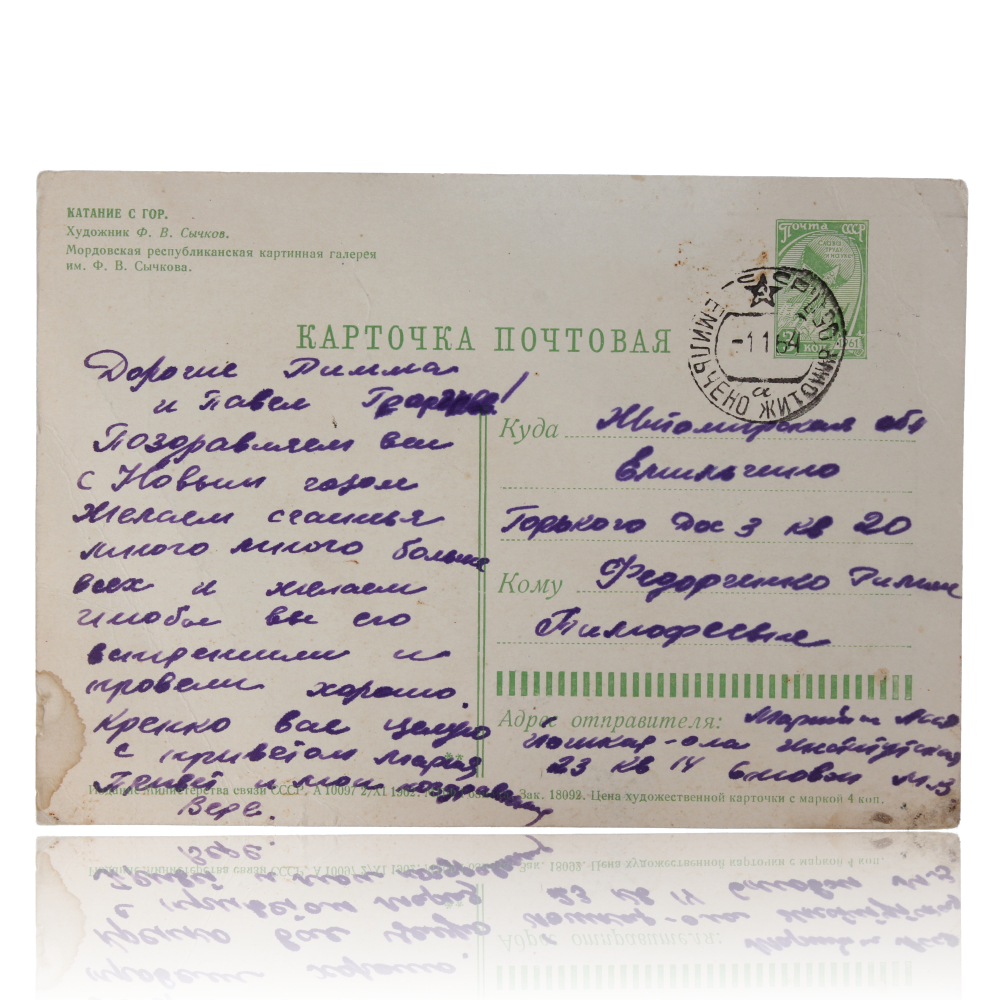 КАТАНИЕ С ГОР.
Художник Ф. В. Сычков.
Мордовская республиканская картинная галерея
им. Ф. В. Сычкова.
Почта СССР
1961
ЕМИЛЬЧЕНО ЖИТОМИР
-1 1 64
а
КАРТОЧКА ПОЧТОВАЯ
Дорогие Римма
и Павел
Поздравляем вас
с Новым годом
Желаем счастья
много много больше
всех и желаем
чтобы вы его
и
провели хорошо.
Крепко вас целую
с приветом Мария
Привет и мои поздравления
Вере.
Куда Житомирская обл
Емильчино
Горького Дос 3 кв 20
Кому Федорченко Римме
Тимофеевне
Адрес отправителя:
Йошкар-ола Институтская
23 кв 14 М.В
Издание Министерства связи СССР. А 10097
Зак. 18092. Цена художественной карточки с маркой 4 коп.